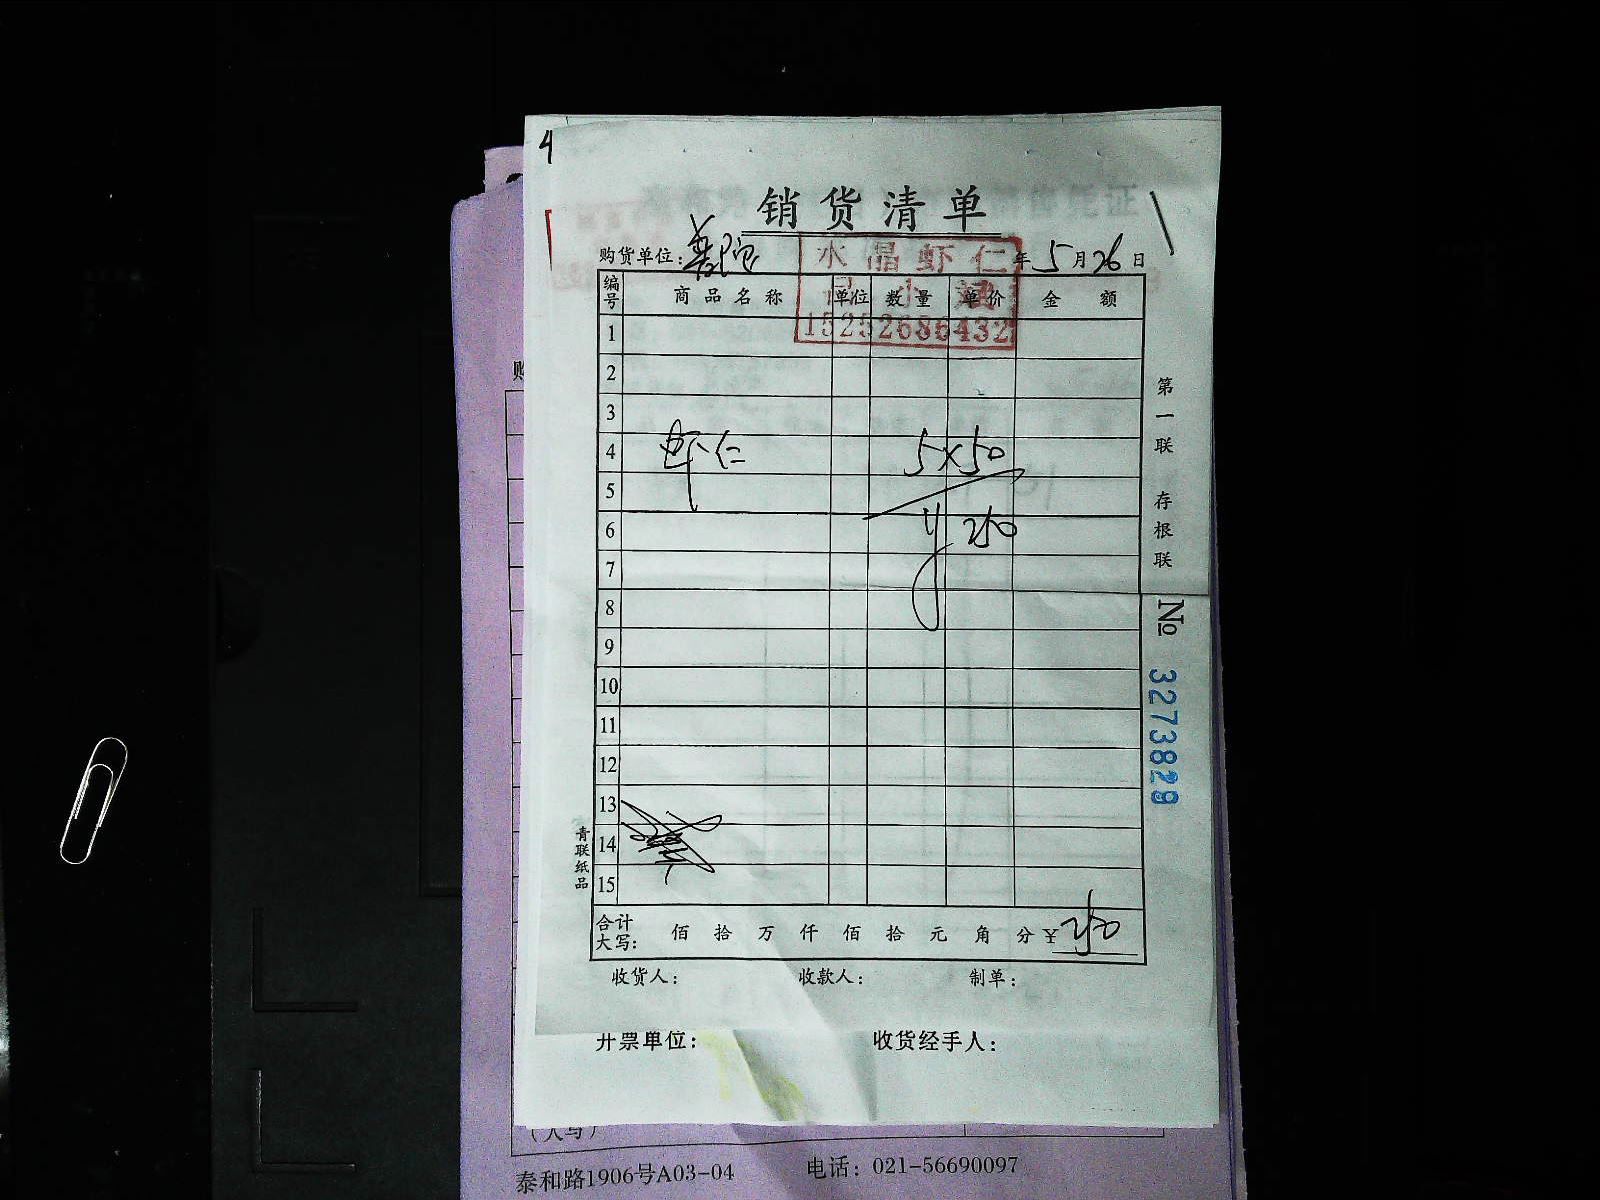 4
销货清单
购货单位:
水晶虾仁
15252686432
年 5 月 26 日
编号 商品名称 单位 数量 单价 金额
1
2
3
4 虾仁 5×50
5
6 250
7
8
9
10
11
12
13
14
15
合计大写: 佰 拾 万 仟 佰 拾 元 角 分 ¥ 250
收货人: 收款人: 制单:
第一联 存根联
№ 3273829
青联纸品
开票单位: 收货经手人:
购
(大写)
泰和路1906号A03-04 电话: 021-56690097